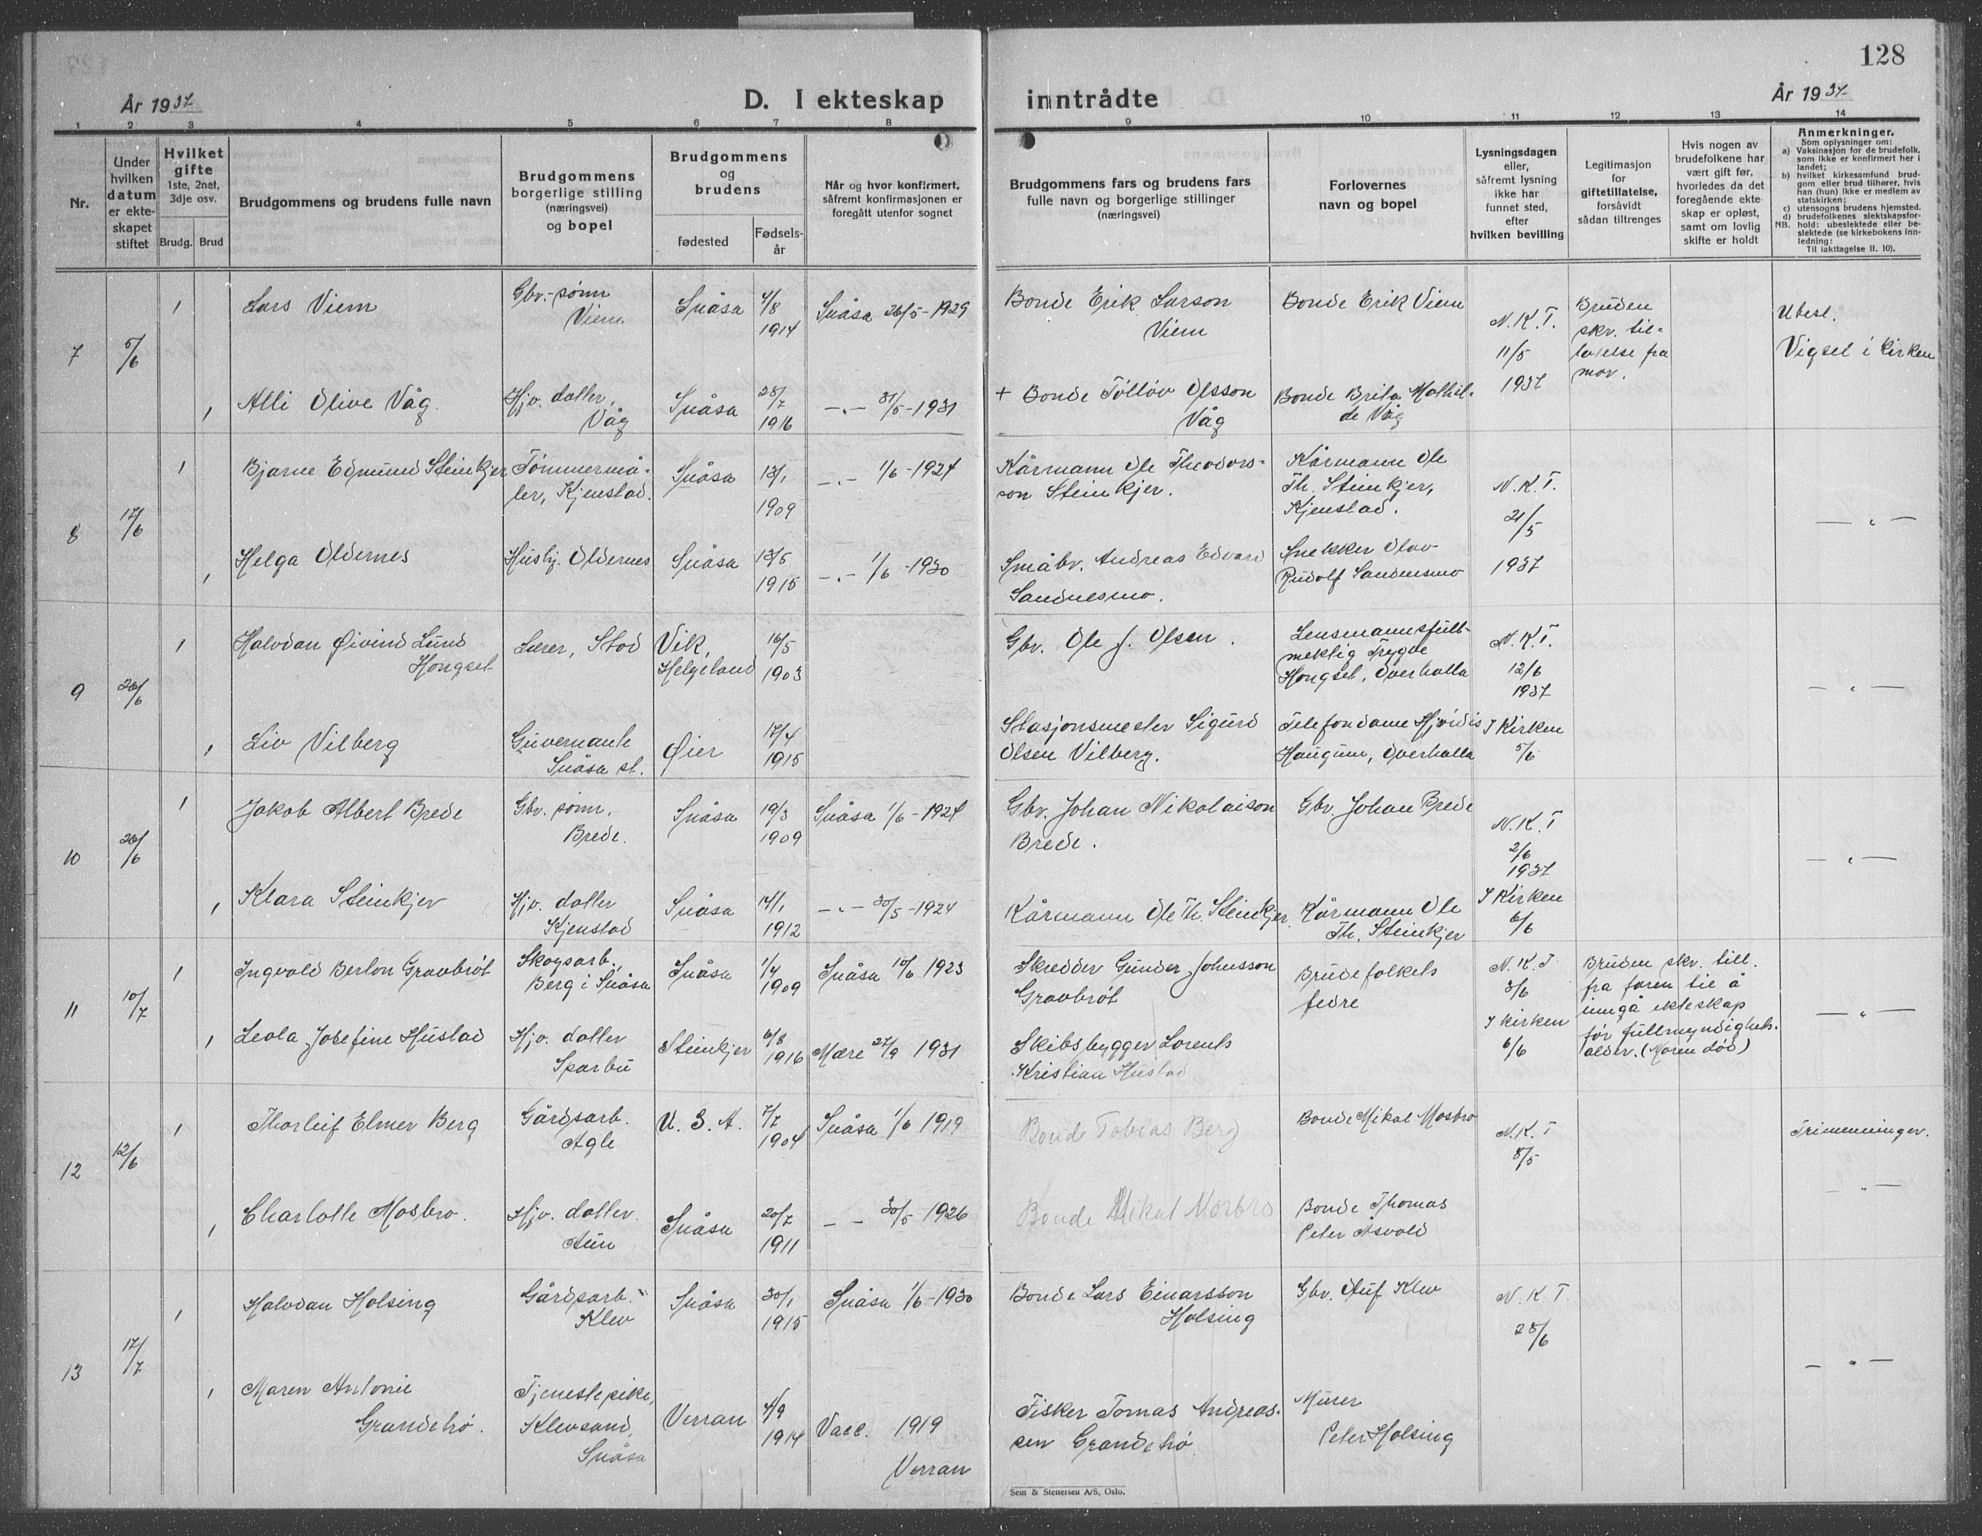 128
År 1937
D. I ekteskap inntrådte
År 1937
1 2 3 4 5 6 7 8 9 10 11 12 13 14
Nr.
Under hvilken datum er ekteskapet stiftet
Hvilket gifte
1ste, 2net, 3dje osv.
Brudg. Brud
Brudgommens og brudens fulle navn
Brudgommens borgerlige stilling (næringsvei) og bopel
Brudgommens og brudens
fødested
Fødselsår
Når og hvor konfirmert, såfremt konfirmasjonen er foregått utenfor sognet
Brudgommens fars og brudens fars fulle navn og borgerlige stillinger (næringsvei)
Forlovernes navn og bopel
Lysningsdagen eller, såfremt lysning ikke har funnet sted, efter hvilken bevilling
Legitimasjon for giftetillatelse, forsåvidt sådan tiltrenges
Hvis nogen av brudefolkene har vært gift før, hvorledes da det foregående ekteskap er opløst, samt om lovlig skifte er holdt
Anmerkninger.
Som oplysninger om:
a) Vaksinasjon for de brudefolk, som ikke er konfirmert her i landet;
b) hvilket kirkesamfund brudgom eller brud tilhører, hvis han (hun) ikke er medlem av statskirken;
c) utensogns brudens hjemsted.
d) brudefolkenes slektskapsforhold: ubeslektede eller beslektede (se kirkebokens innledning:
NB. Til iakttagelse II. 10).
7 5/6
1 Lars Viem Gbr.-sønn Viem Snåsa 4/8 1914 Snåsa 26/5-1929 Bonde Erik Larson Viem Bonde Erik Viem N.K.T. 11/5 1937 Bruden skr. tillatelse fra mor. Ubesl. Vigsel i kirken
1 Alli Olive Våg. Hjv. datter, Våg Snåsa 28/7 1916 -"- 31/5-1931 + Bonde Tølløv Olsson Våg Bonde Brita Mathilde Våg
8 17/6
1 Bjarne Edmund Steinkjer Tømmermåler, Kjenstad. Snåsa 13/1 1909 -"- 1/6-1924 Kårmann Ole Theodorsson Steinkjer. Kårmann Ole Th. Steinkjer, Kjenstad. N.K.T. 21/5 1937 -"-
1 Helga Oldernes Husbj. Oldernes Snåsa 13/5 1915 -"- 1/6-1930 Småbr. Andreas Edvard Sandnesmo. Snekker Olav Rudolf Sandnesmo
9 26/6
1 Halvdan Øivind Lund Hongset Lærer, Stod Vik, Helgeland 16/5 1903 Gbr. Ole J. Olsen. Lensmannsfullmektig Trygve Hongset, Overhalla N.K.T. 12/6 1937 -"-
1 Liv Vilberg Guvernante Snåsa st. Øier 17/4 1915 Stasjonsmester Sigurd Olsen Vilberg. Telefondame Hjørdis Haugum, Overhalla I Kirken 5/6
10 26/6
1 Jakob Albert Brede Gbr. sønn, Brede. Snåsa 19/3 1909 Snåsa 1/6-1924 Gbr. Johan Nikolaison Brede. Gbr. Johan Brede N.K.T 2/6 1937 -"-
1 Klara Steinkjer Hjv. datter Kjenstad Snåsa 14/1 1912 -"- 30/5-1924 Kårmann Ole Th. Steinkjer. Kårmann Ole Th. Steinkjer I Kirken 6/6
11 10/7
1 Ingvald Berton Gravbrøt Skogsarb. Berg i Snåsa Snåsa 1/4 1909 Snåsa 10/6 1923 Skredder Gunder Johnsson Gravbrøt Brudefolkets fedre N.K.T 3/6 Bruden skr. till. fra faren til å inngå ekteskap før fullmyndighets. alder. (Moren død) -"-
1 Leola Josefine Hustad Hjv. datter Sparbu Steinkjer 6/8 1916 Mære 27/9 1931 Skibsbygger Lorents Kristian Hustad I kirken 6/6
12 12/6
1 Thorleif Elmer Berg Gårdsarb. Agle U. S. A. 7/7 1904 Snåsa 1/6 1919 Bonde Tobias Berg Bonde Mikal Mosbro N.K.T 8/5 Trimenninger.
1 Charlotte Mosbro. Hjv. datter. Aun Snåsa 20/7 1911 - - 30/5 1926 Bonde Mikal Mosbro Bonde Thomas Peter Åsvold -"-
13 17/7
1 Halvdan Holsing Gårdsarb. Klev Snåsa 30/1 1915 Snåsa 1/6-1930 Bonde Lars Einarsson Holsing Gbr. Oluf Klev N.K.T. 28/6 -"-
1 Maren Antonie Grandehø. Tjenestepike, Klevsand, Snåsa Verran 4/9 1914 Vacc. 1919 Verran Fisker Tomas Andreassen Grandehø Murer Peter Holsing
Sem & Stenersen A/S, Oslo.